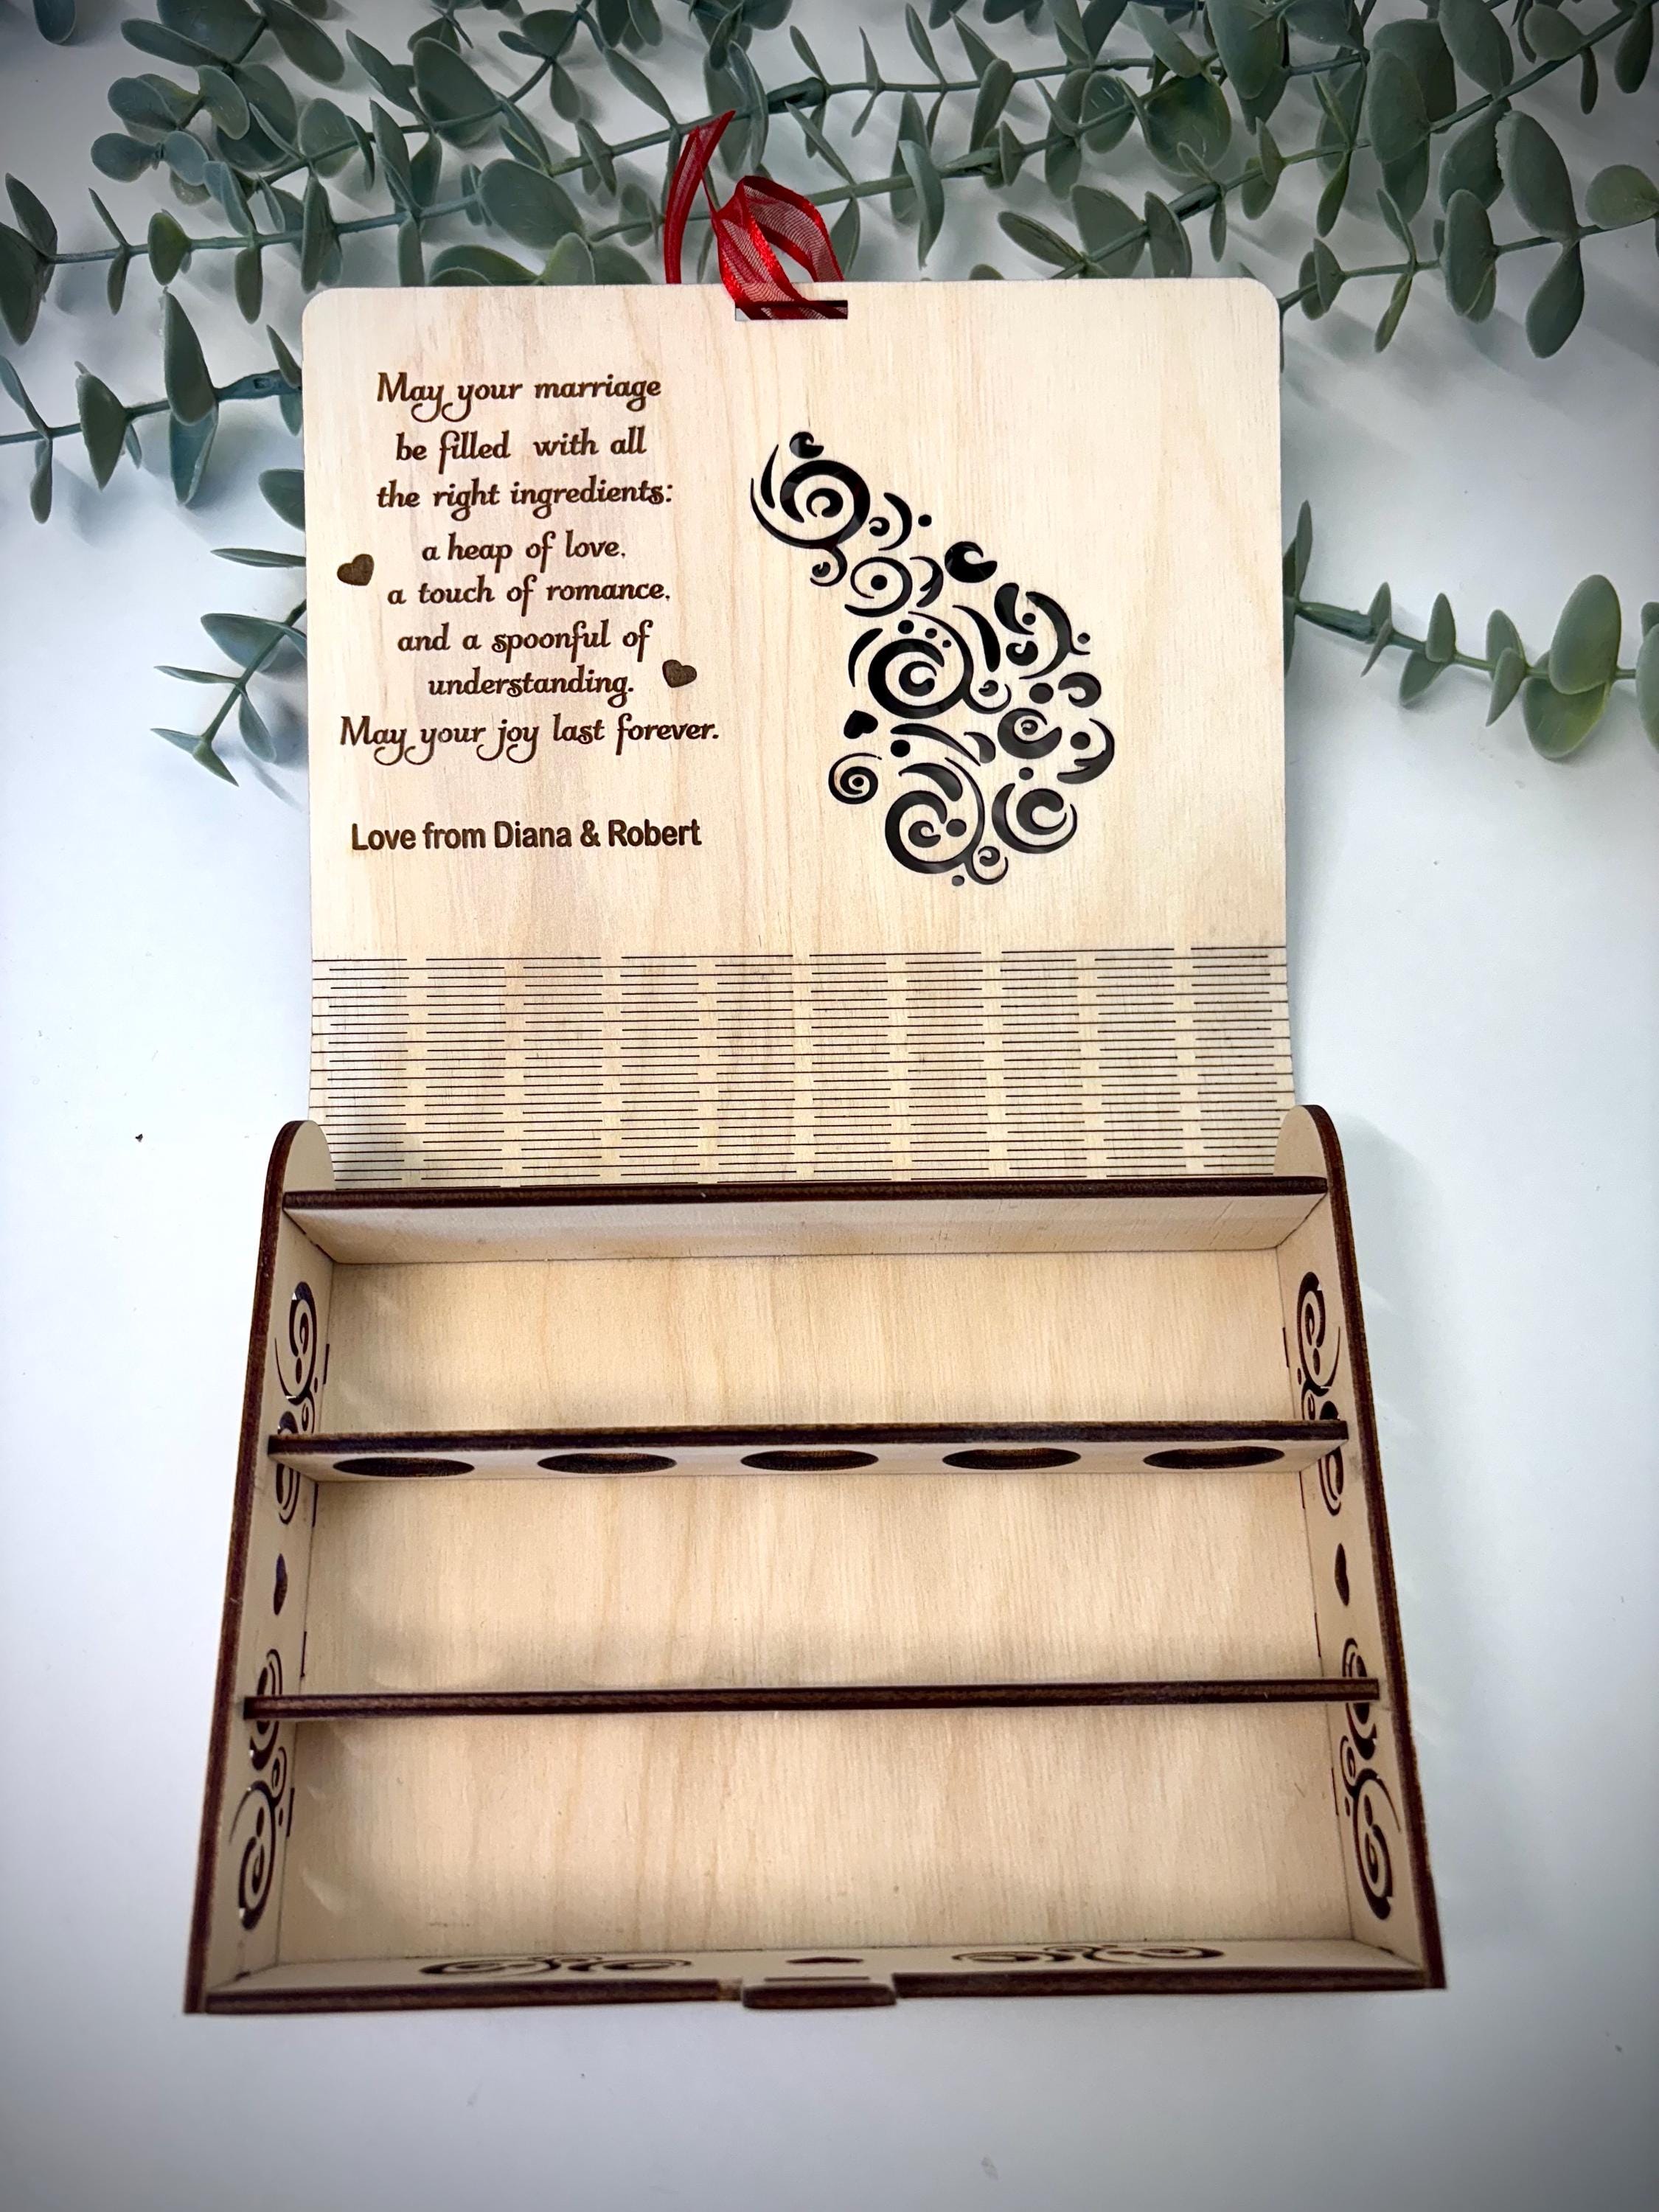 May your marriage
be filled with all
the right ingredients:
a heap of love,
a touch of romance,
and a spoonful of
understanding.
May your joy last forever.
Love from Diana & Robert